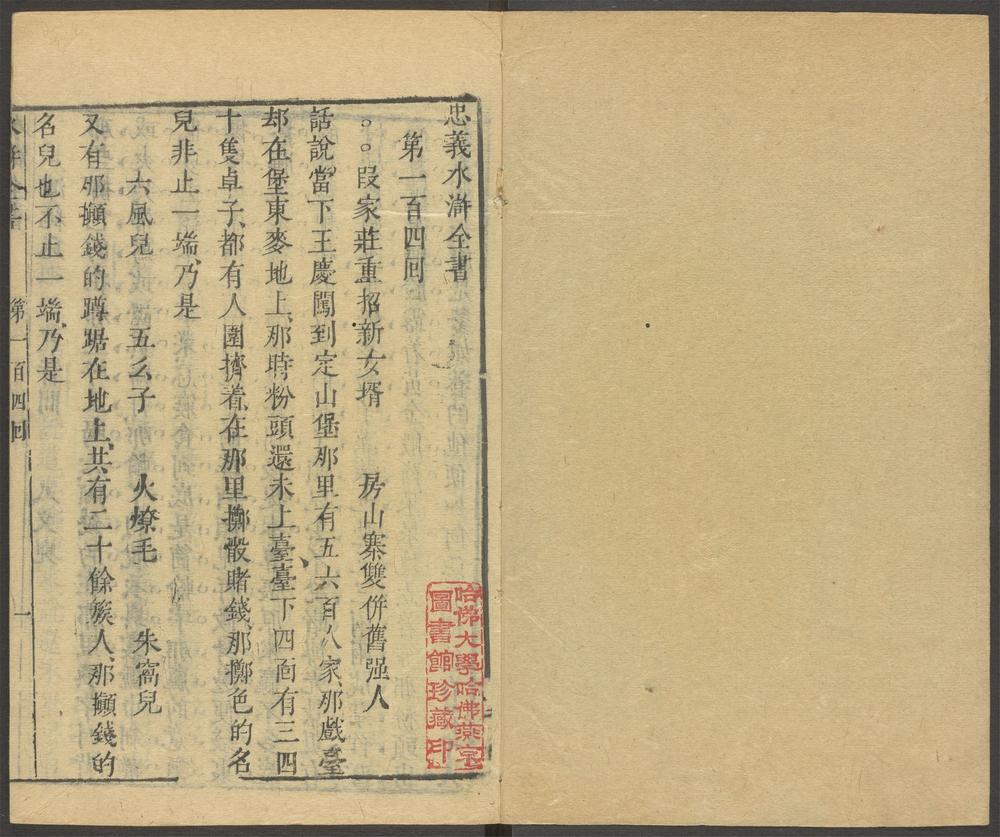 忠義水滸全書
第一百四回
○○段家莊重招新女壻 房山寨雙併舊强人
話說當下王慶闖到定山堡那里有五六百人家那戲臺
却在堡東麥地上、那時粉頭還未上臺、臺下四面有三四
十隻卓子、都有人圍擠着、在那里擲骰賭錢、那擲色的名
兒非止一端、乃是
六風兒 五么子 火燎毛 朱窩兒
又有那攧錢的蹲踞在地上、共有二十餘簇人、那攧錢的
名兒也不止一端、乃是
第一百四回 一
哈佛大學哈佛燕京
圖書館珍藏印